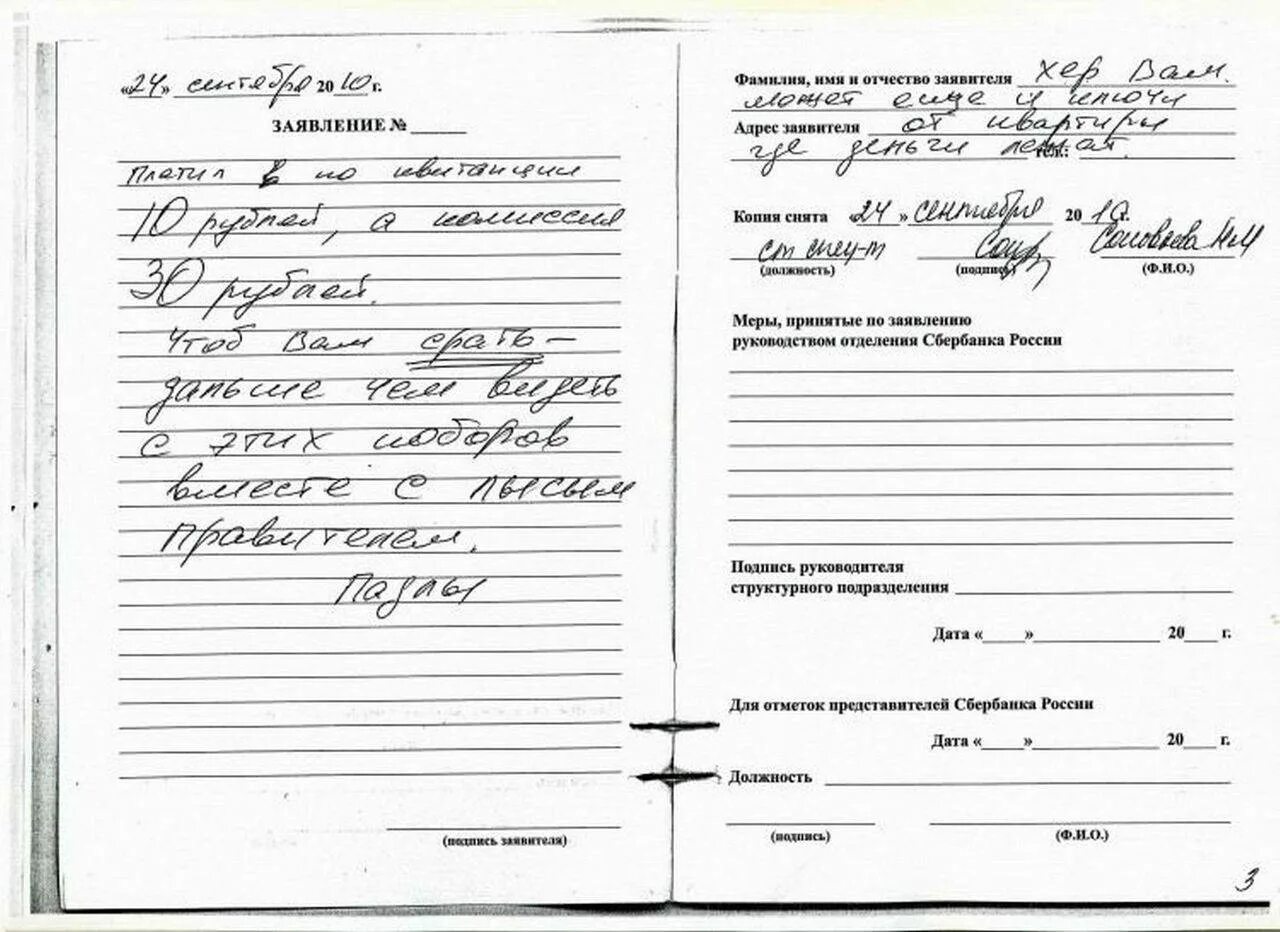 «24» сентября 2010 г.
ЗАЯВЛЕНИЕ № ______
Платил по квитанции
10 рублей, а комиссия
30 рублей.
Чтоб Вам срать –
дальше чем видеть
с этих поборов
вместе с лысым
правителем.
Падлы
(подпись заявителя)
Фамилия, имя и отчество заявителя хер Вам.
может еще и ключи
Адрес заявителя от квартиры
где деньги лежат. тел.:
Копия снята «24» сентября 2010г.
ст спец-т Соловьева НМ
(должность) (подпись) (Ф.И.О.)
Меры, принятые по заявлению
руководством отделения Сбербанка России
Подпись руководителя
структурного подразделения
Дата «____»____________ 20___ г.
Для отметок представителей Сбербанка России
Дата «____»____________ 20___ г.
Должность
(подпись) (Ф.И.О.)
3